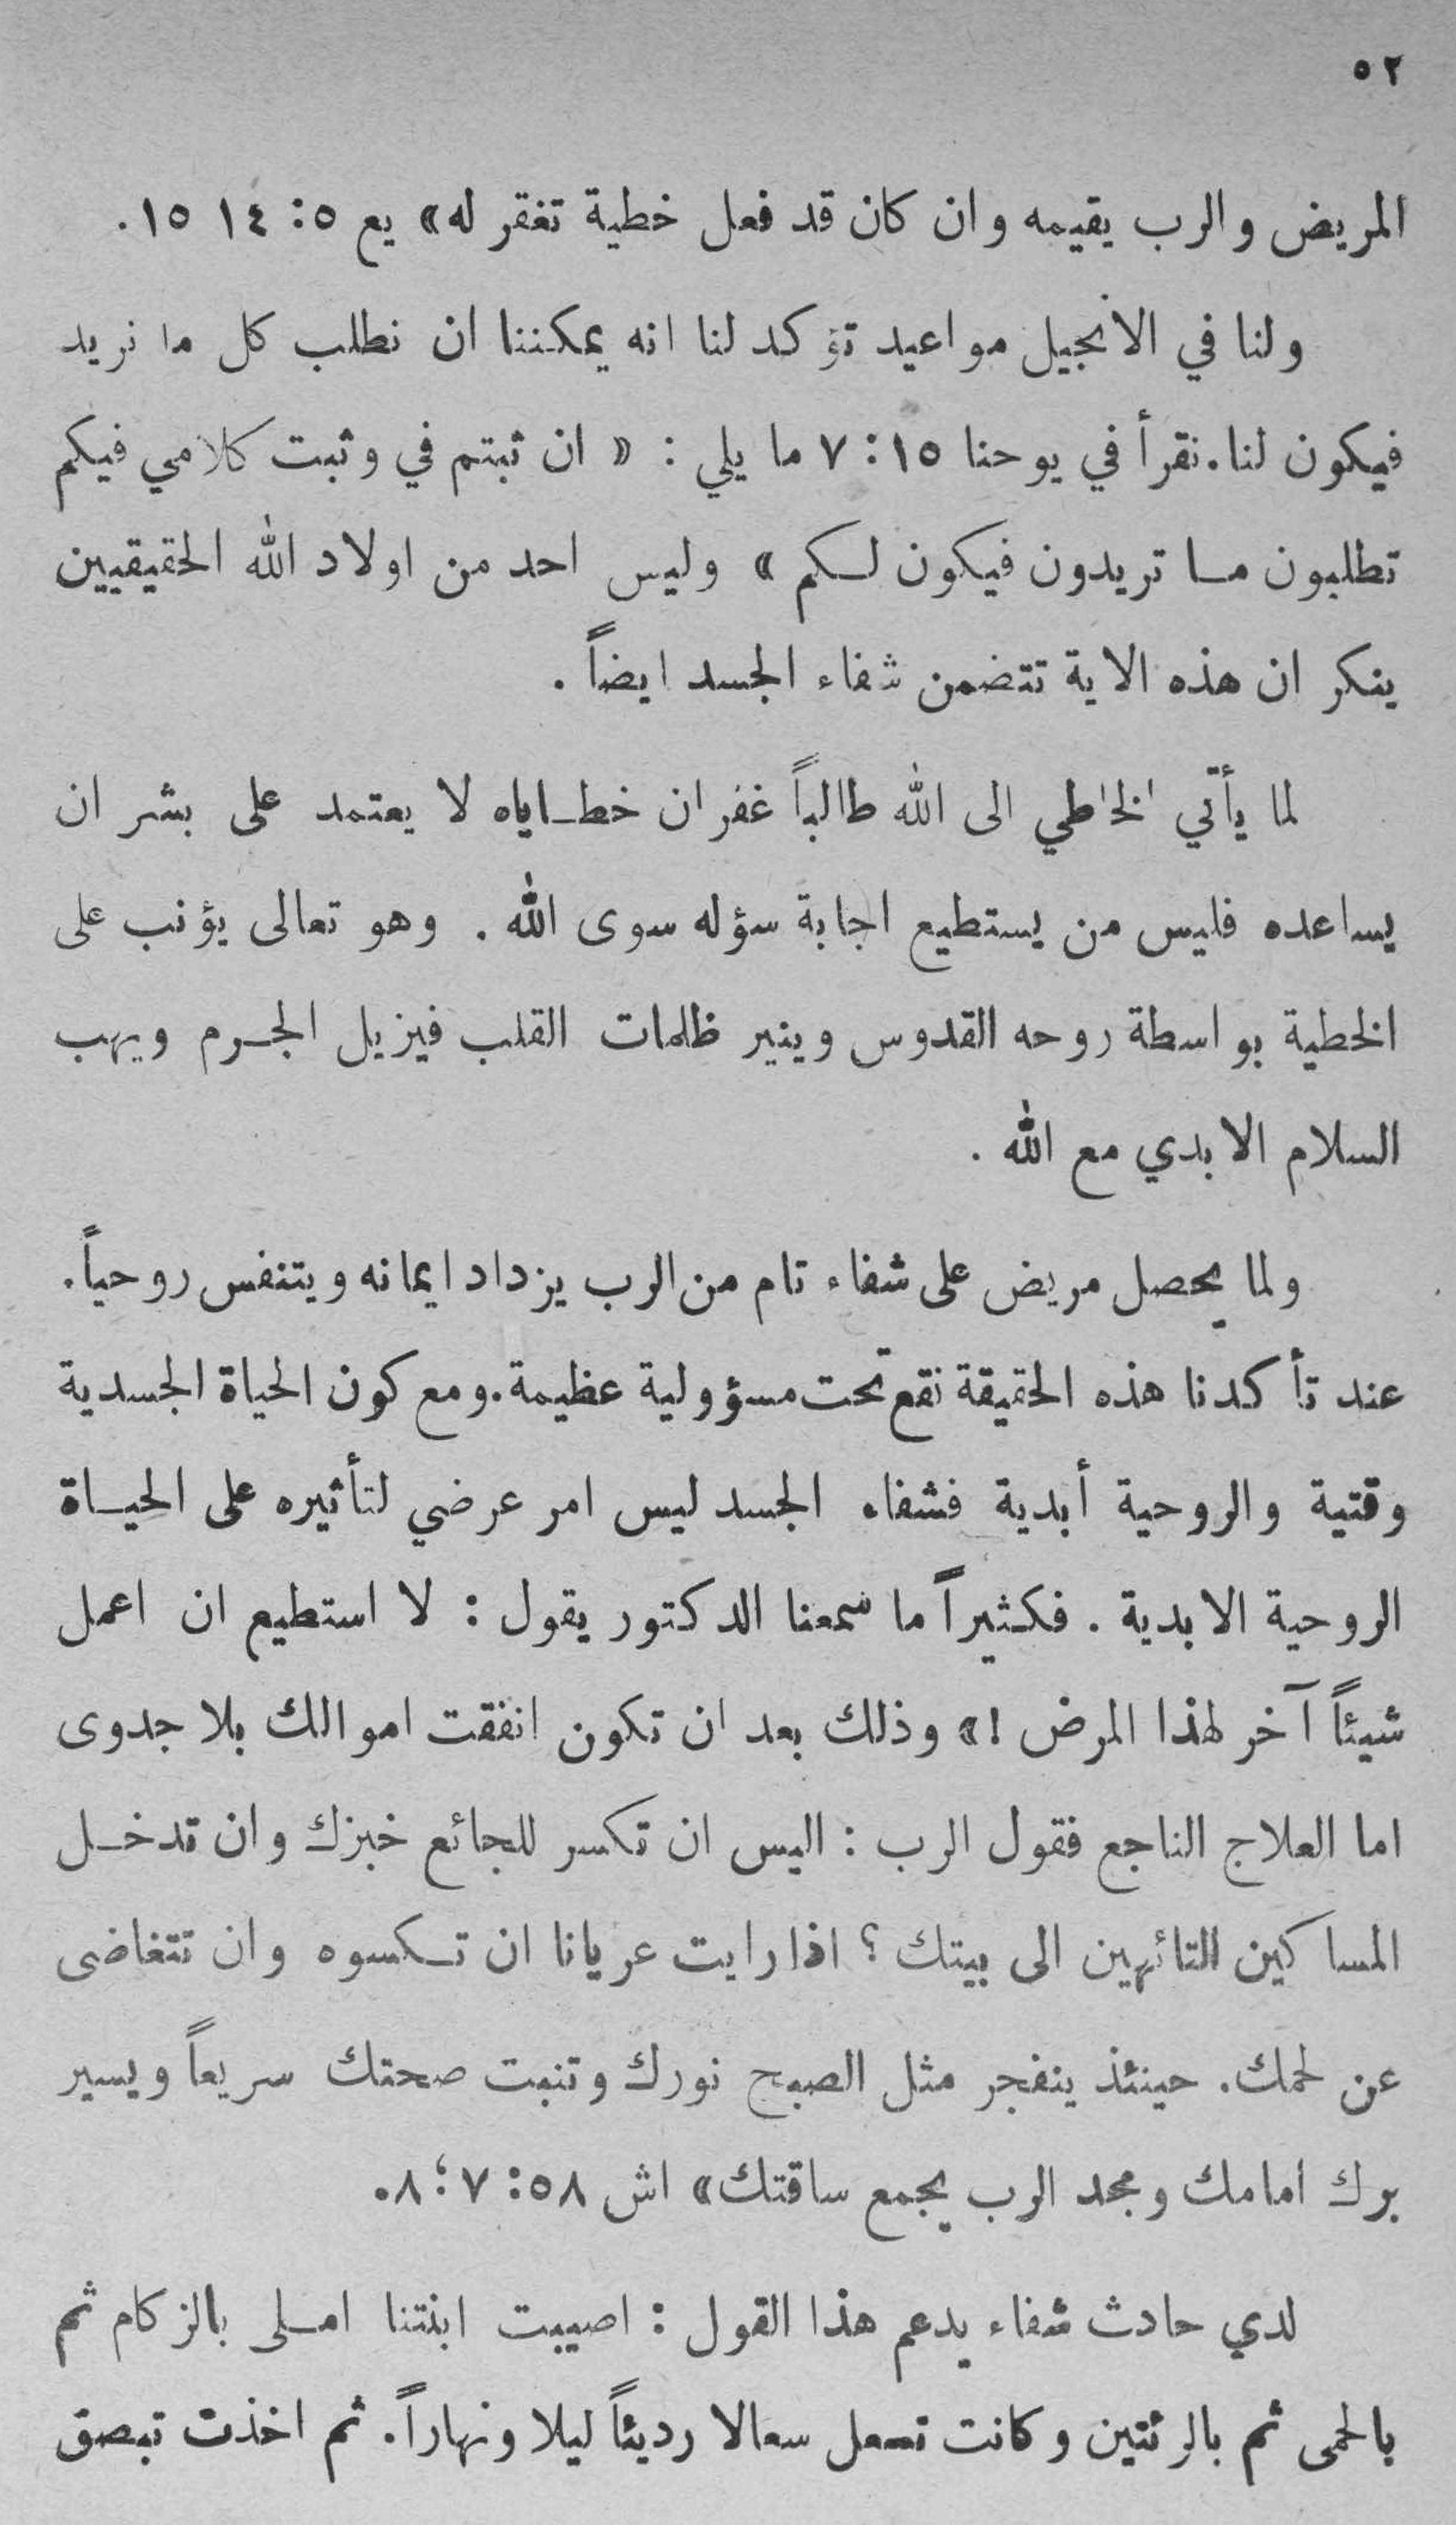 ٥٢
المريض والرب يقيمه وان كان قد فعل خطية تغفر له» يع ٥: ١٤ ١٥.
ولنا في الانجيل مواعيد تؤكد لنا انه يمكننا ان نطلب كل ما نريد
فيكون لنا. نقرأ في يوحنا ١٥: ٧ ما يلي : « ان ثبتم في وثبت كلامي فيكم
تطلبون مـا تريدون فيكون لـكم » وليس احد من اولاد الله الحقيقيين
ينكر ان هذه الاية تتضمن شفاء الجسد ايضاً .
لما يأتي الخاطي الى الله طالباً غفران خطـاياه لا يعتمد على بشر ان
يساعده فليس من يستطيع اجابة سؤله سوى الله . وهو تعالى يؤنب على
الخطية بواسطة روحه القدوس وينير ظلمات القلب فيزيل الجـرم ويهب
السلام الابدي مع الله .
ولما يحصل مريض على شفاء تام من الرب يزداد ايمانه ويتنفس روحياً.
عند تأكدنا هذه الحقيقة نقع تحت مسؤولية عظيمة. ومع كون الحياة الجسدية
وقتية والروحية أبدية فشفاء الجسد ليس امر عرضي لتأثيره على الحيـاة
الروحية الابدية . فكثيراً ما سمعنا الدكتور يقول : لا استطيع ان اعمل
شيئاً آخر لهذا المرض !» وذلك بعد ان تكون انفقت اموالك بلا جدوى
اما العلاج الناجع فقول الرب : اليس ان تكسر للجائع خبزك وان تدخـل
المساكين التائهين الى بيتك ؟ اذا رايت عريانا ان تـكسوه وان تتغاضى
عن لحمك. حينئذ ينفجر مثل الصبح نورك وتنبت صحتك سريعاً ويسير
برك امامك ومجد الرب يجمع ساقتك» اش ٥٨: ٧؛ ٨.
لدي حادث شفاء يدعم هذا القول : اصيبت ابنتنا امـلى بالزكام ثم
بالحمى ثم بالرئتين وكانت تسعل سعالا رديئاً ليلا ونهاراً. ثم اخذت تبصق